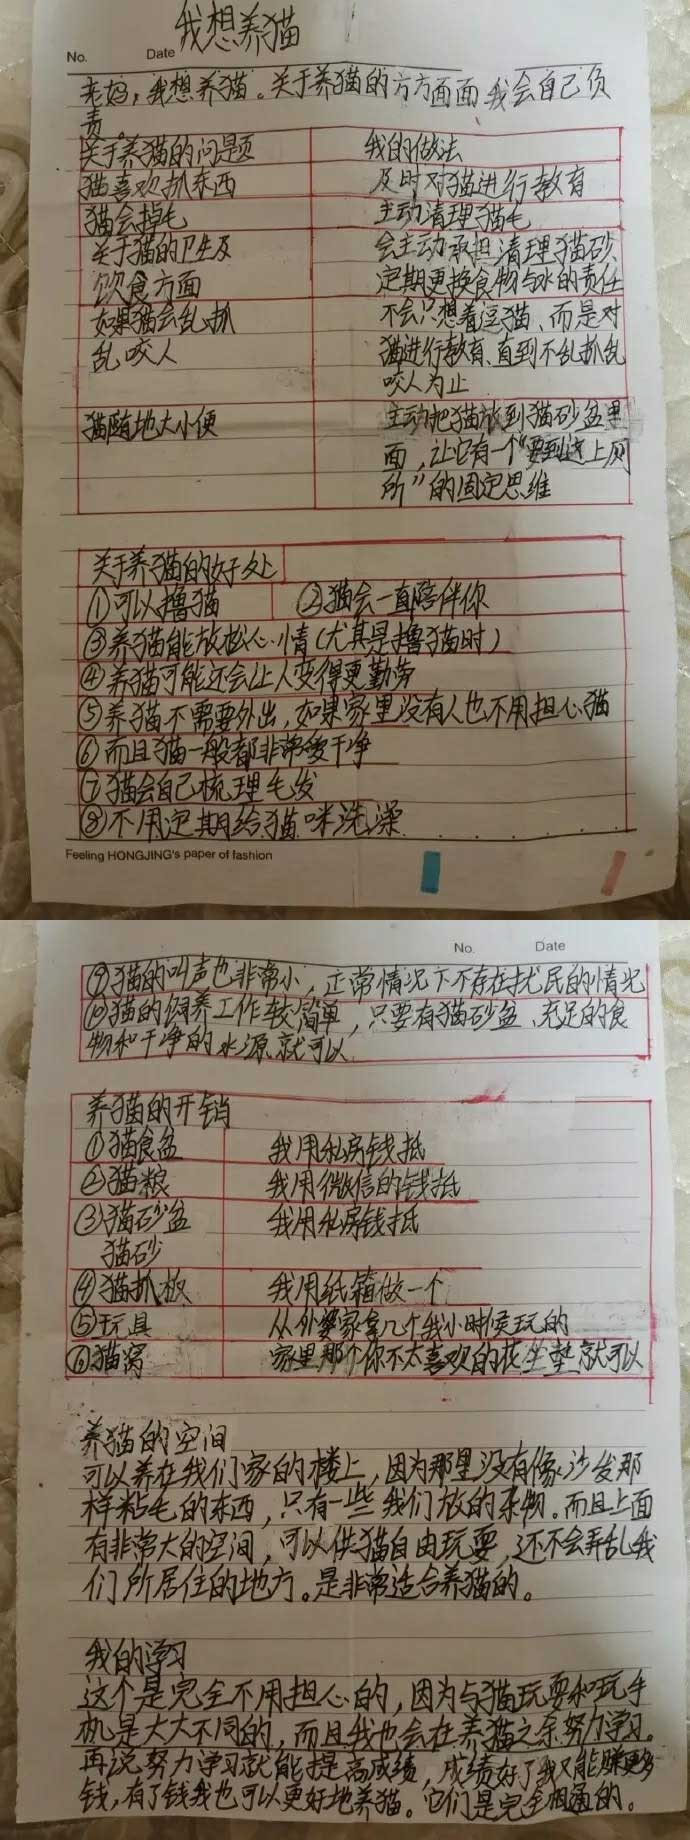 我想养猫
No. Date
老妈，我想养猫。关于养猫的方方面面我会自己负
责。
关于养猫的问题 我的做法
猫喜欢抓东西 及时对猫进行教育
猫会掉毛 主动清理猫毛
关于猫的卫生及 会主动承担清理猫砂、
饮食方面 定期更换食物与水的责任
如果猫会乱抓 不会只想着逗猫、而是对
乱咬人 猫进行教育、直到不乱抓乱
咬人为止
猫随地大小便 主动把猫放到猫砂盆里
面，让它有一个“要到这上厕
所”的固定思维
关于养猫的好处
①可以撸猫 ②猫会一直陪伴你
③养猫能放松心情（尤其是撸猫时）
④养猫可能还会让人变得更勤劳
⑤养猫不需要外出，如果家里没有人也不用担心猫
⑥而且猫一般都非常爱干净
⑦猫会自己梳理毛发
⑧不用定期给猫咪洗澡
Feeling HONGJING's paper of fashion
No. Date
⑨猫的叫声也非常小，正常情况下不存在扰民的情况
⑩猫的饲养工作较简单，只要有猫砂盆、充足的食
物和干净的水源就可以
养猫的开销
①猫食盆 我用私房钱抵
②猫粮 我用微信的钱抵
③猫砂盆 我用私房钱抵
猫砂
④猫抓板 我用纸箱做一个
⑤玩具 从外婆家拿几个我小时候玩的
⑥猫窝 家里那个你不太喜欢的花坐垫就可以
养猫的空间
可以养在我们家的楼上，因为那里没有像沙发那
样粘毛的东西，只有一些我们放的杂物。而且上面
有非常大的空间，可以供猫自由玩耍，还不会弄乱我
们所居住的地方。是非常适合养猫的。
我的学习
这个是完全不用担心的，因为与猫玩耍和玩手
机是大大不同的，而且我也会在养猫之余努力学习。
再说努力学习就能提高成绩，成绩好了我又能赚更多
钱，有了钱我也可以更好地养猫。它们是完全相通的。